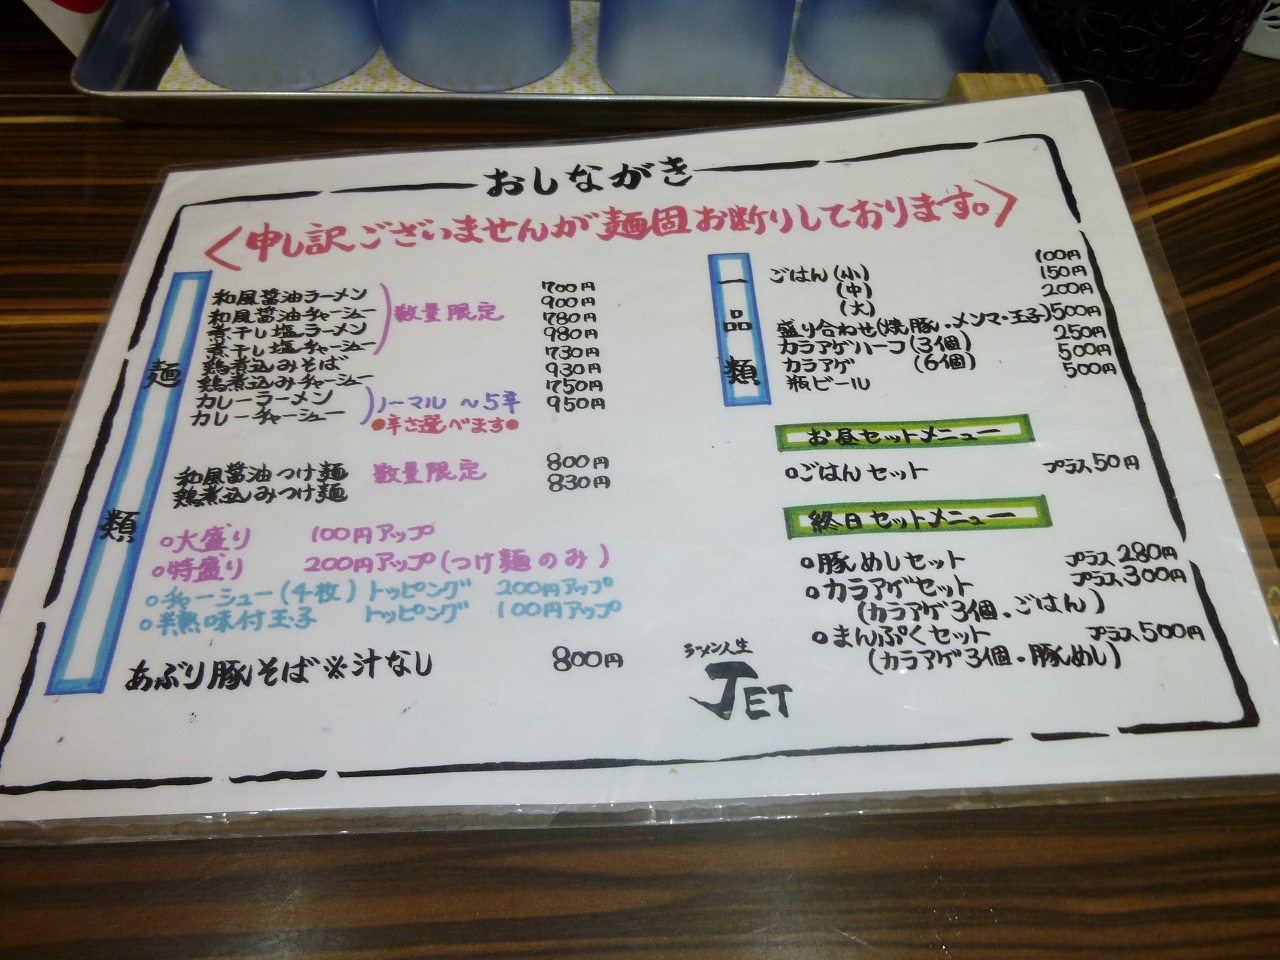 おしながき
〈申し訳ございませんが麺固お断りしております。〉
麺類
和風醤油ラーメン 700円
和風醤油チャーシュー 900円
数量限定
煮干し塩ラーメン 780円
煮干し塩チャーシュー 980円
鶏煮込みそば 730円
鶏煮込みチャーシュー 930円
カレーラーメン 750円
カレーチャーシュー 950円
ノーマル ~5辛
●辛さ選べます●
和風醤油つけ麺 数量限定 800円
鶏煮込みつけ麺 830円
○大盛り 100円アップ
○特盛り 200円アップ(つけ麺のみ)
○チャーシュー(4枚)トッピング 200円アップ
○半熟味付玉子 トッピング 100円アップ
あぶり豚そば※汁なし 800円
一品類
ごはん(小) 100円
(中) 150円
(大) 200円
盛り合わせ(焼豚.メンマ・玉子) 500円
カラアゲハーフ(3個) 250円
カラアゲ (6個) 500円
瓶ビール 500円
お昼セットメニュー
○ごはんセット プラス50円
終日セットメニュー
○豚めしセット プラス280円
○カラアゲセット プラス300円
(カラアゲ3個.ごはん)
○まんぷくセット プラス500円
(カラアゲ3個.豚めし)
ラーメン人生
JET